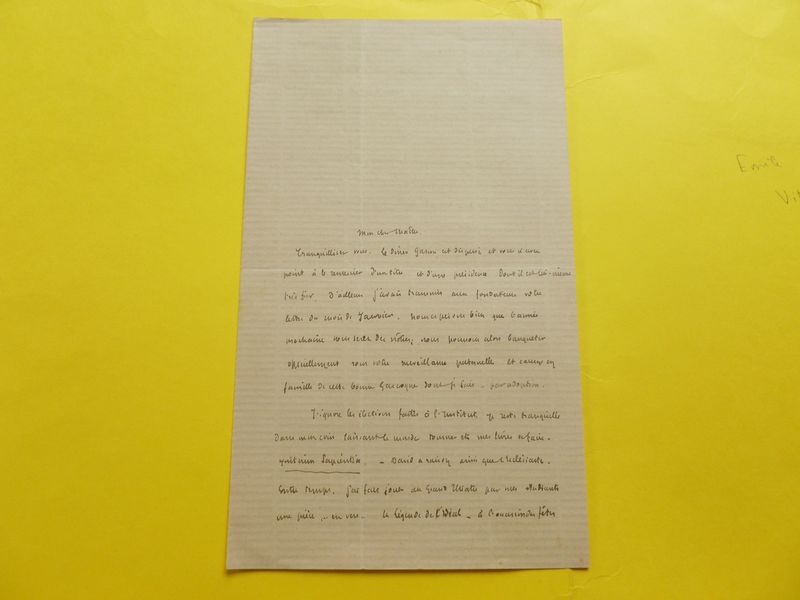 Mon cher Maître.
Tranquillisez vous. Le dîner Gascon est et vous n'avez
point à le remercier d'un titre et d'une présidence dont il est lui-même
très fier. D'ailleurs j'avais transmis aux fondateurs votre
lettre du mois de Janvier. bien que l'année
prochaine vous serez des nôtres, nous pourrons alors banqueter
officiellement sous votre surveillance paternelle et causer en
famille de cette bonne Gascogne dont je suis - par adoption.
J'ignore les élections faites à l'Institut, je reste tranquille
dans mon coin laissant le monde tourner et mes livres se faire.
Sapientia. - David a raison ainsi que l'Ecclésiaste.
Entre temps, j'ai fait jouer au Grand Théâtre par mes étudiants
une pièce ... en vers. La légende de l'Idéal - à l'occasion des fêtes
Emile
Vi